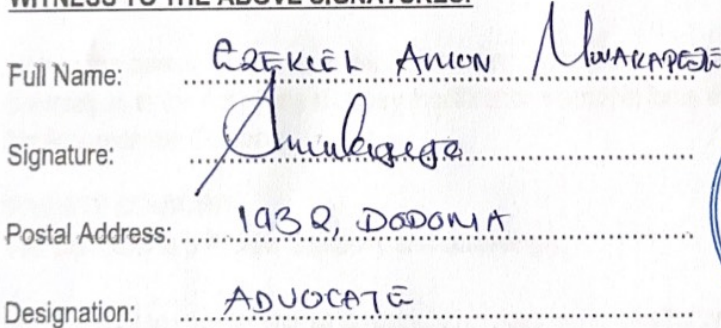 WITNESS TO THE ABOVE SIGNATURES:
Full Name: EZEKIEL AMON MWAKAPEJE
Signature:
Postal Address: 1932, DODOMA
Designation: ADVOCATE